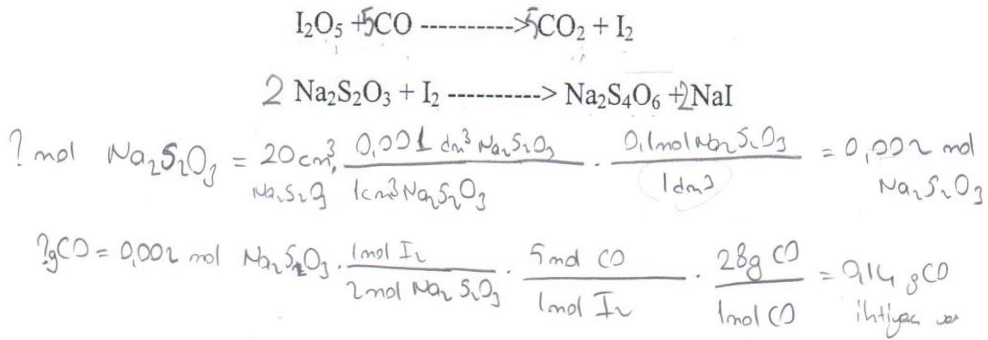 I₂O₅ + 5CO ----------> 5CO₂ + I₂
2 Na₂S₂O₃ + I₂ ----------> Na₂S₄O₆ + 2NaI
? mol Na₂S₂O₃ = 20 cm³ Na₂S₂O₃ · 0,001 dm³ Na₂S₂O₃ / 1cm³ Na₂S₂O₃ · 0,1 mol Na₂S₂O₃ / 1 dm³ = 0,002 mol Na₂S₂O₃
? gCO = 0,002 mol Na₂S₂O₃ · 1mol I₂ / 2mol Na₂S₂O₃ · 5 mol CO / 1mol I₂ · 28g CO / 1mol CO = 0,14 gCO ihtiyac var